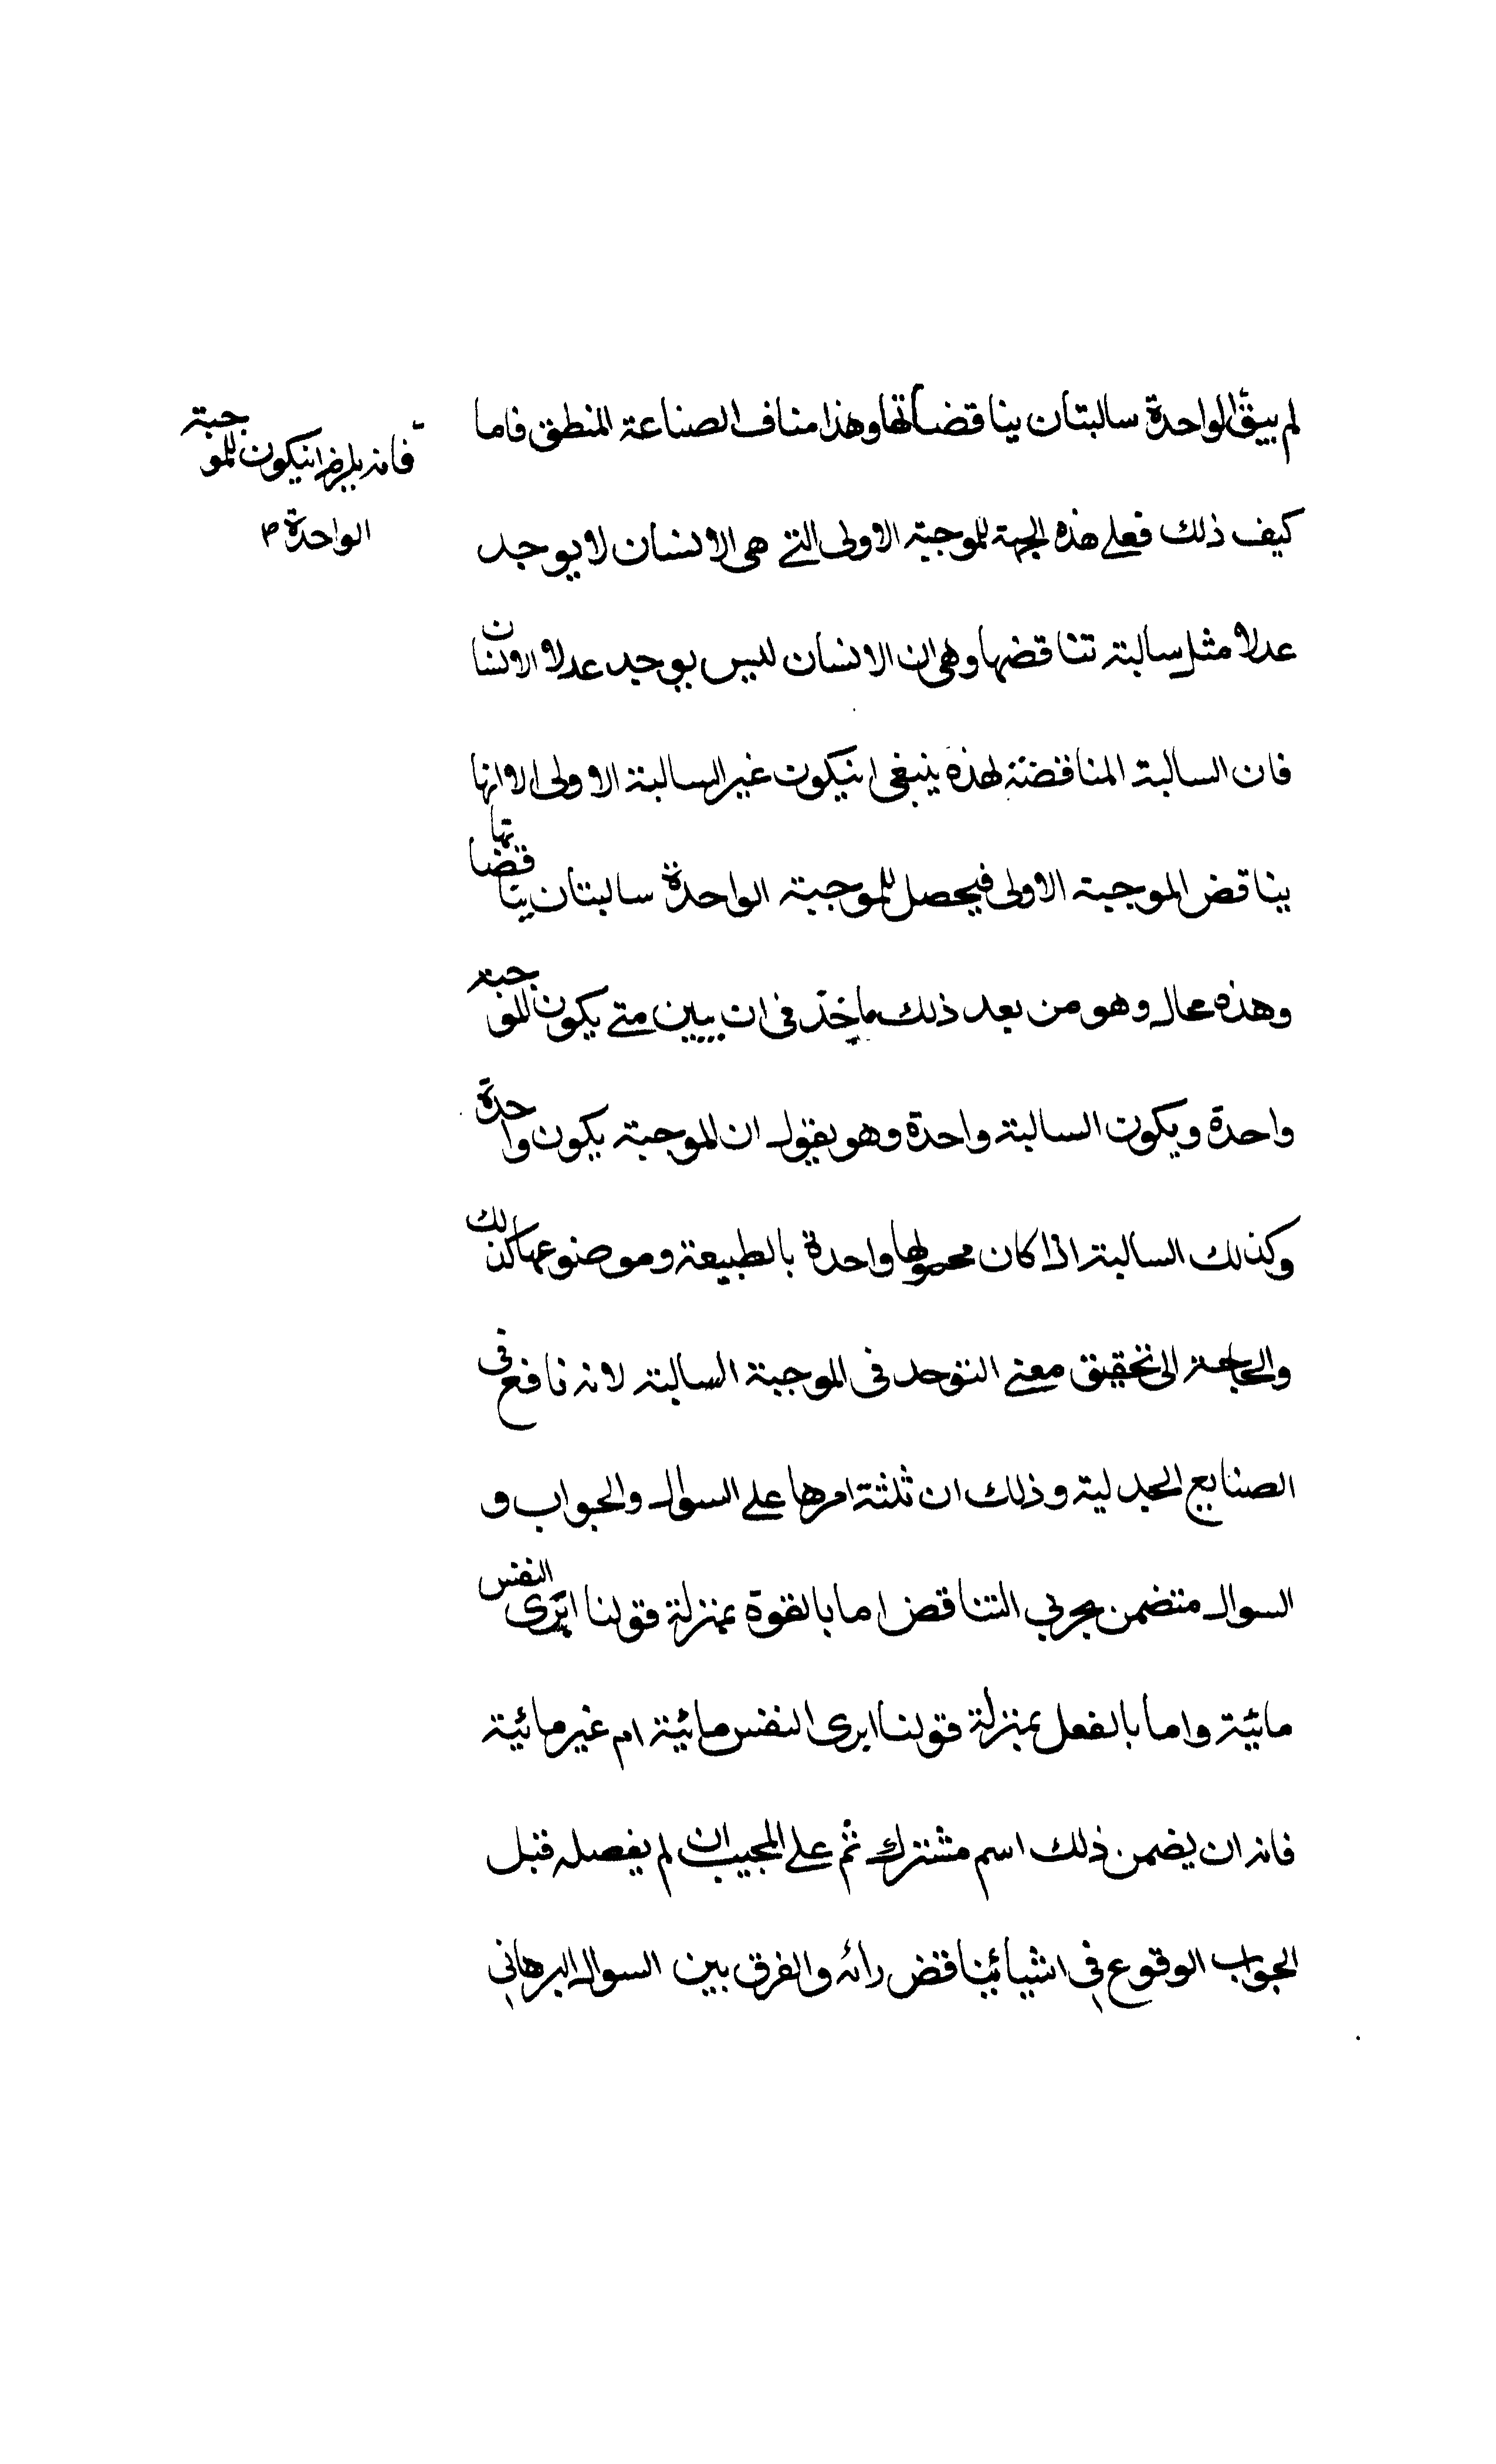 لم يبق الواحدة سالبتان يناقضانها وهذا مناف الصناعة المنطق فاما
فانه يلزم انيكون للموجبة
الواحدة
كيف ذلك فعلى هذه الجهة للموجبة الاولى التى هى الانسان لا يوجد
عدلا مثل سالبة تناقضها وهى ان الانسان ليس يوجد عدلا الانسان
فان السالبة المناقضة لهذه ينبغى انيكون غير السالبة الاولى الا انها
يناقض الموجبة الاولى فيحصل للموجبة الواحدة سالبتان يناقضانها
وهذه محال وهو من بعد ذلك ياخذ فى ان يبين متى يكون للموجبة
واحدة ويكون السالبة واحدة وهو يقول ان الموجبة يكون واحدة
وكذلك السالبة اذا كان محمولها واحدة بالطبيعة وموضوعها كذلك
والحاجة الى تحقيق معنى التوحد فى الموجبة السالبة لانه نافع فى
الصنايع الجدلية وذلك ان ثلثة امرها على السوال والجواب و
السوال متضمن بجزئى التناقض اما بالقوة بمنزلة قولنا اترى النفس
مائية واما بالفعل بمنزلة قولنا ابرى النفس مائية ام غير مائية
فانه ان يضمن ذلك اسم مشترك ثم على المجيب ان لم يفصله قبل
الجواب الوقوع فى اشياء يناقض رائه والفرق بين السوال البرهانى